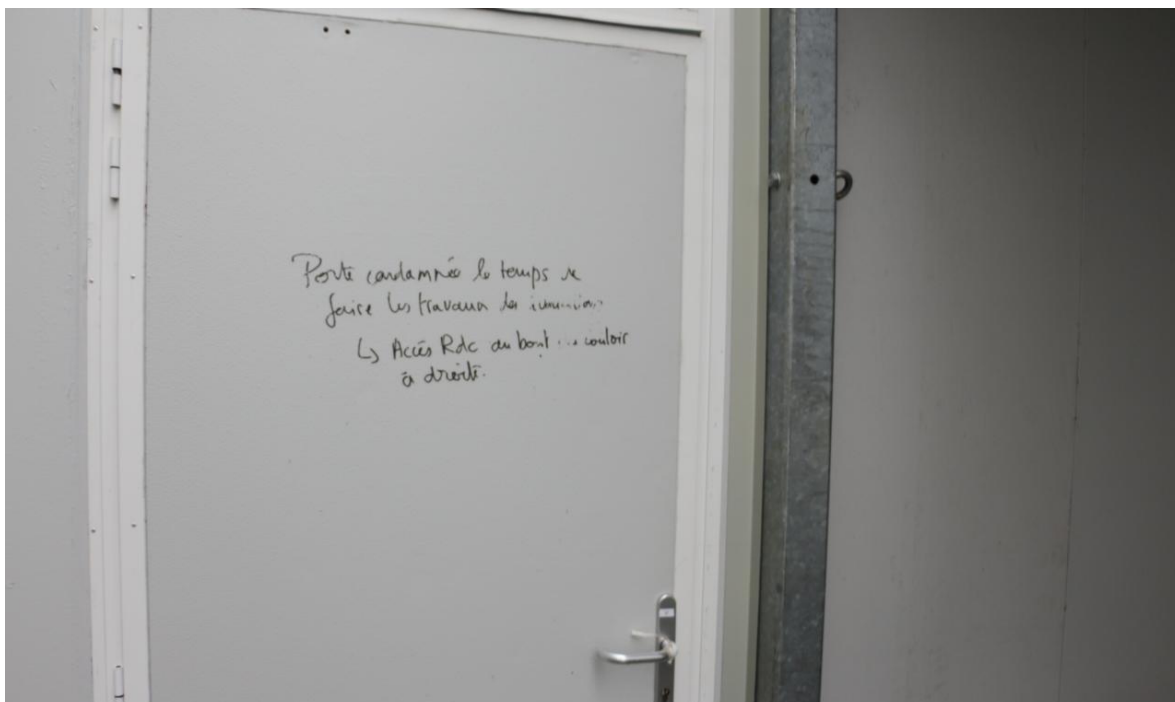 Porte condamnée le temps de
faire les travaux des
↳ Accès Rdc au bout couloir
à droite.